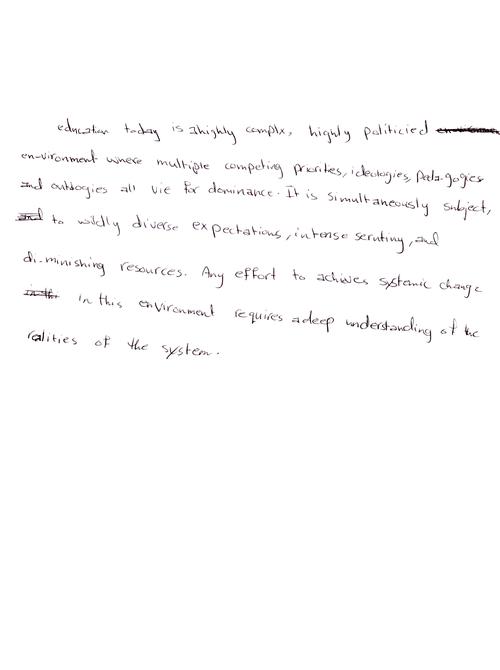 education today is a highly complx, highly politicied
en-vironment where multiple competing priorites, ideologies, peda-gogies
and outologies all vie for dominance. It is simultaneously subject,
to wildly diverse expectations, intense scrutiny, and
di-minishing resources. Any effort to achives systemic change
in this environment requires a deep understanding of the
ralities of the system.